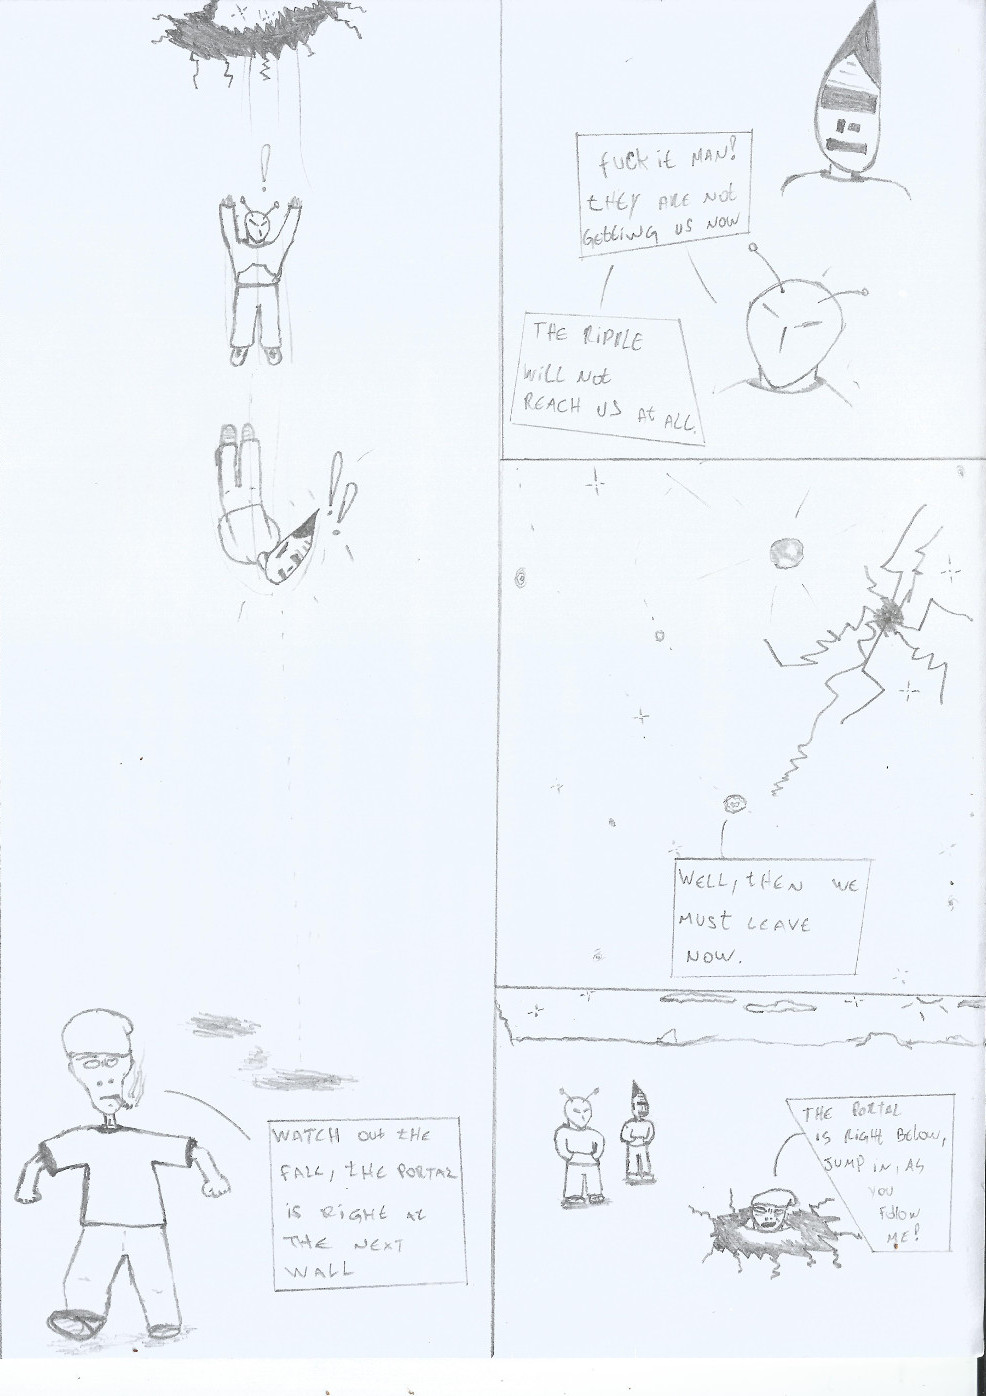 !
!!
WATCH OUt tHE
FALL, tHE PORTAL
iS RiGHT At
THE NEXT
WALL
FUCK it MAN!
tHEY ARE NOt
GEttiNG US NOW
THE RiPPLE
WiLL NOt
REACH US At ALL.
WELL, tHEN WE
MUSt LEAVE
NOW.
THE PORTAL
iS RiGHT BELOW,
JUMP iN, AS
YOU
FOLLOW
ME!